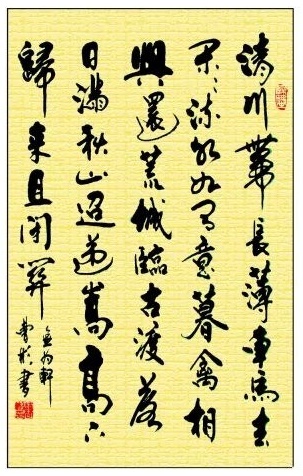 清川帶長薄車馬去
閑〻流水如有意暮禽相
與還荒城臨古渡落
日滿秋山迢遞嵩高下
歸來且閉關
軒
書